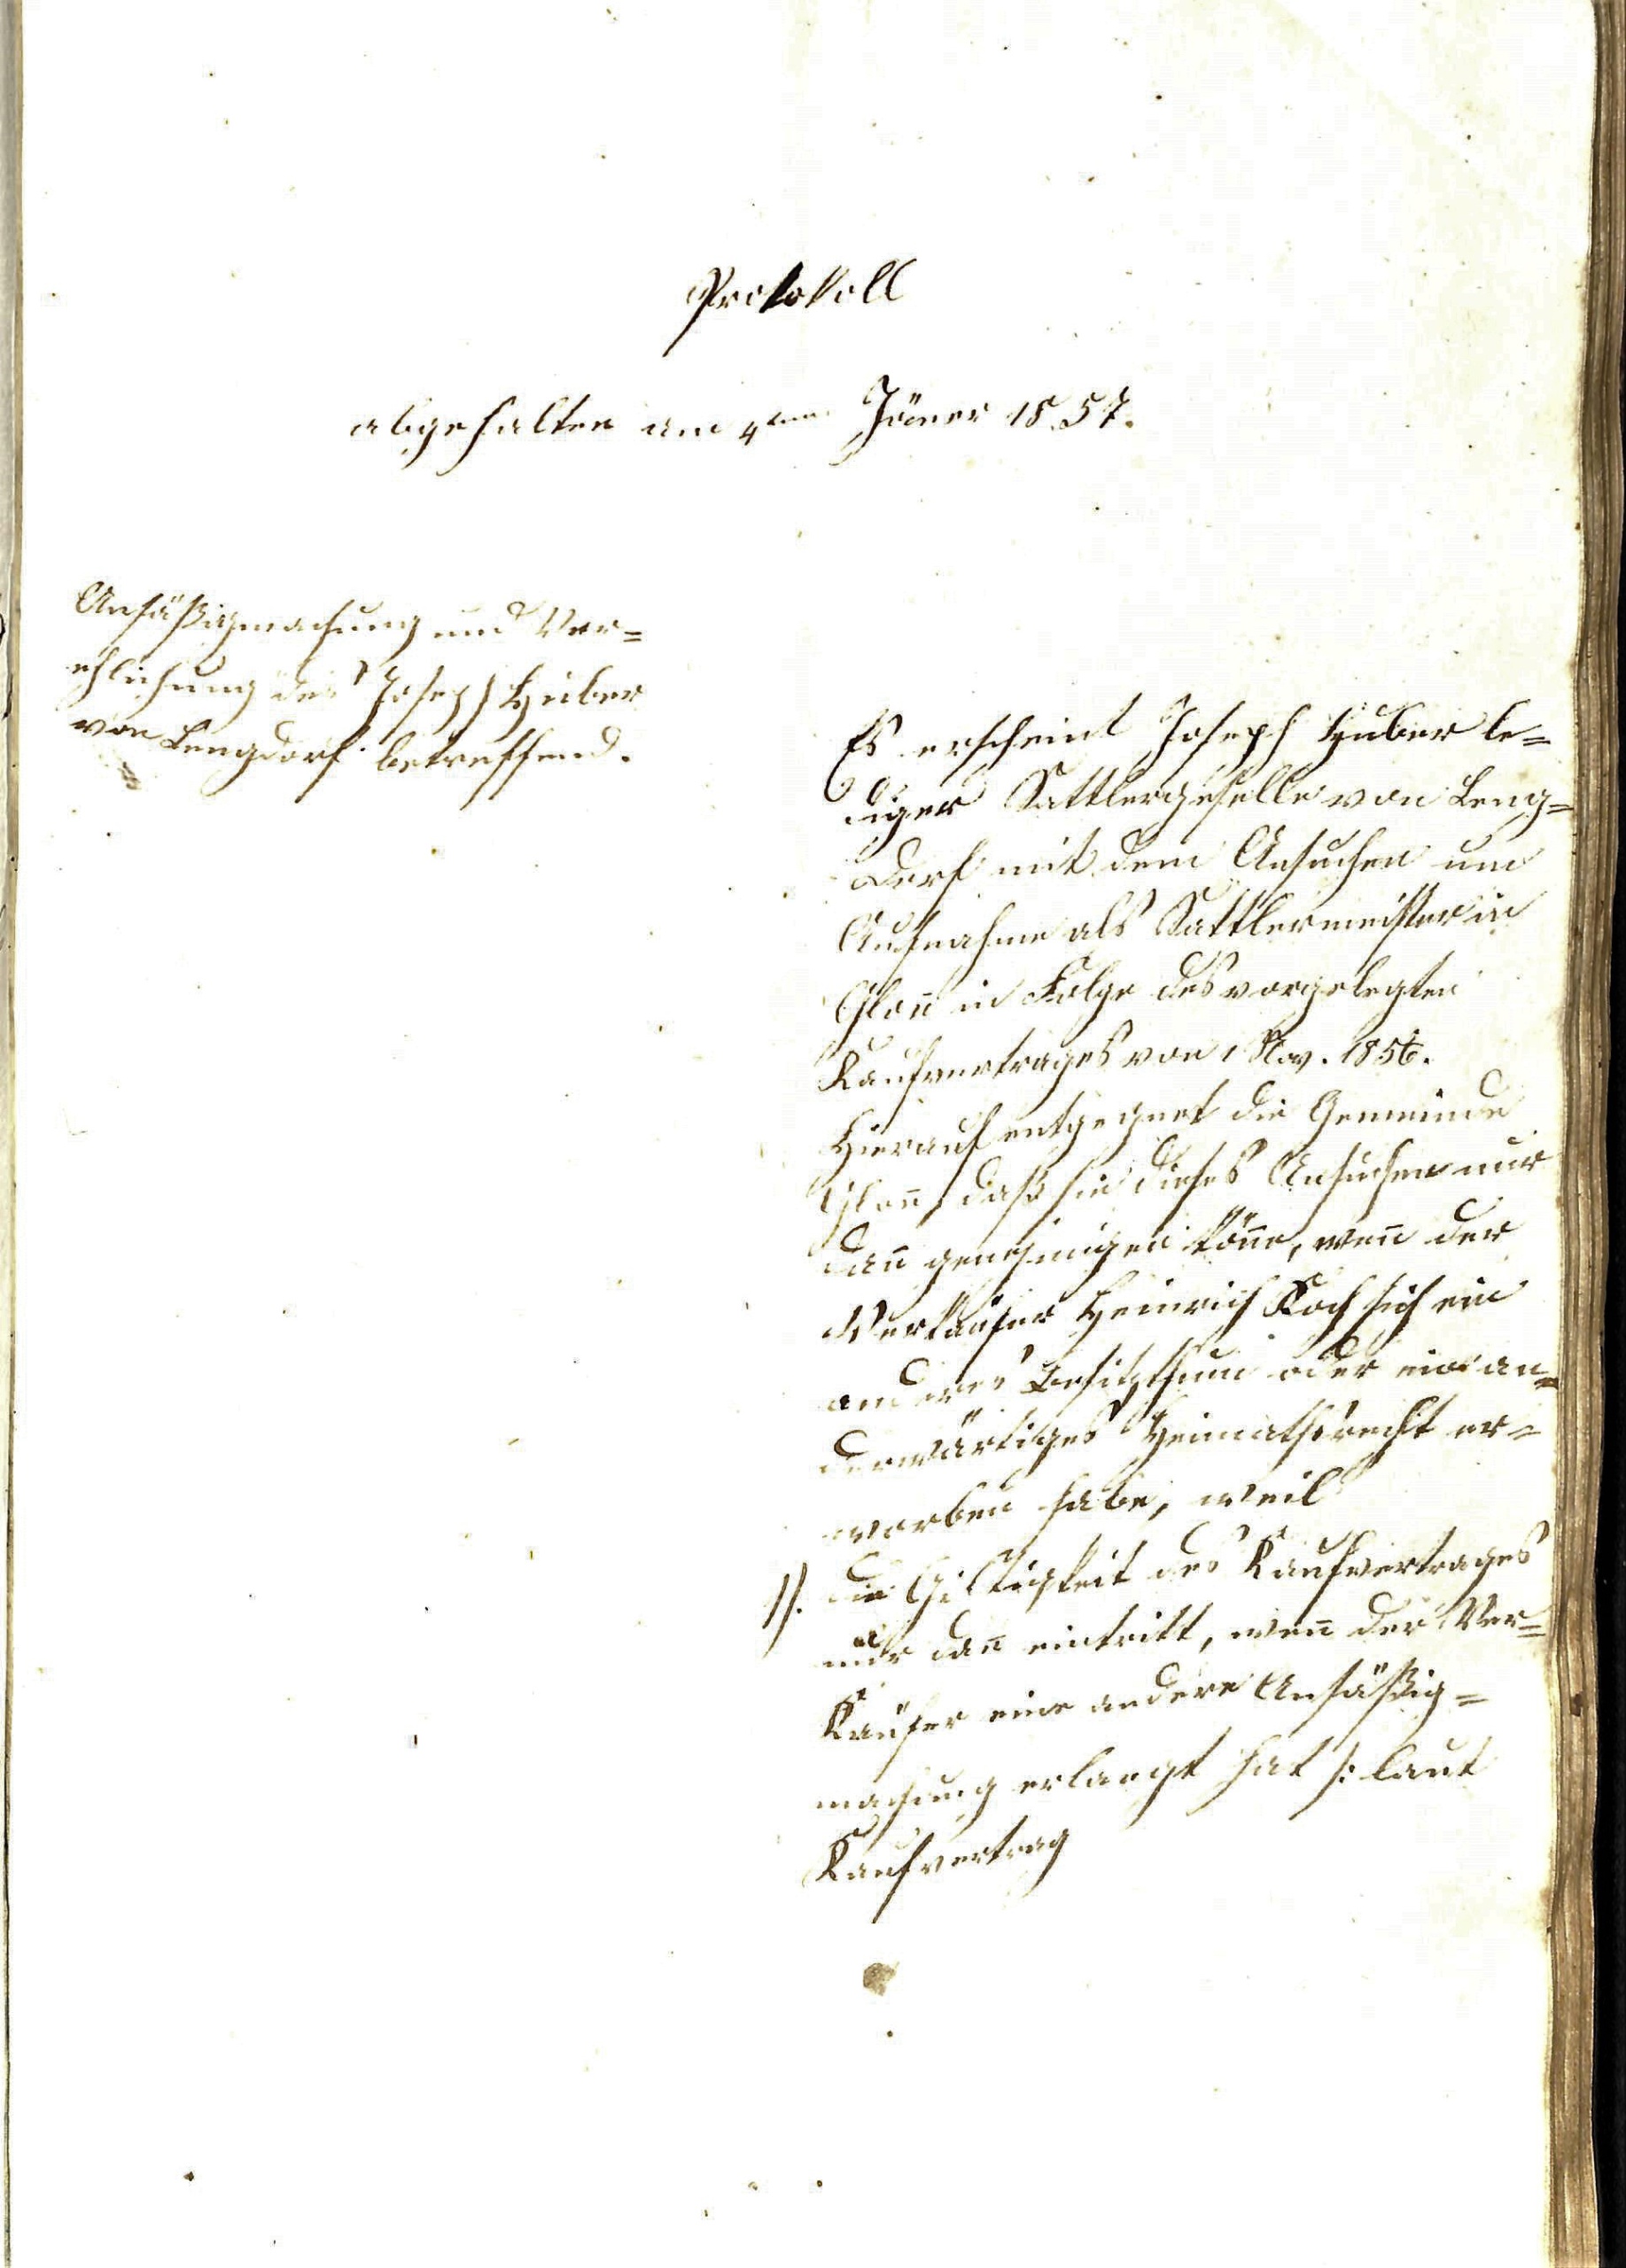 Protokoll
abgehalten am 4ten Jäner 1857.
Ansäßigmachung und Ver=
ehlichung des Joseph Huber
von Lengdorf betreffend.
Es erscheint Joseph Huber le=
diger Sattlergeselle von Leng=
dorf mit dem Ansuchen um
Aufnahme als Sattlermeister in
Glon̄ in Folge des vorgelegten
Kaufvertrages von 1 Nov. 1856.
Hierauf entgegnet die Gemeinde
Glon̄, daß sie dieses Ansuchen nur
dan̄ genehmigen kön̄e, wen̄ der
Verkäufer Heinrich Koch sich ein
anderes Besitzthum oder ein an=
derwärtiges Heimathsrecht er=
worben habe, weil
1). die Giltigkeit des Kaufvertrages
nur dan̄ eintritt, wen̄ der Ver=
käufer eine andere Ansäßig=
machung erlangt hat /: laut
Kaufvertrag